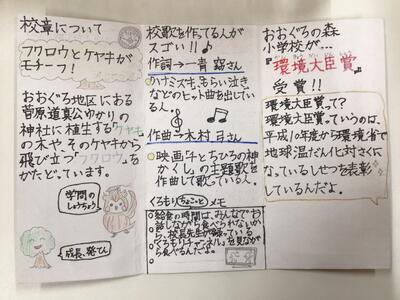 校章について
フクロウとケヤキが
モチーフ！
おおぐろ地区にある
菅原道真公ゆかりの
神社に植生するケヤキ
の木や、そのケヤキから
飛び立つ「フクロウ」を
かたどっています。
学問の
しょうちょう
成長、発てん
校歌を作ってる人が
スゴい!!♪
作詞→一青窈さん
ハナミズキ、もらい泣き
などのヒット曲を出している
人。
作曲→木村弓さん
映画「千とちひろの神
かくし」の主題歌を
作曲して歌っている人。
くろもりちょこっとメモ
給食の時間は、みんなでお
話しながら食べられないか
ら、校長先生が録っている
「くろもりチャンネル」を見なが
ら食べるんだよ。
おおぐろの森
小学校が…
『環境大臣賞』
受賞!!
環境大臣賞って?
環境大臣賞っていうのは、
平成10年度から環境省で
地球温だん化対さくに
なっているしせつを表彰
しているんだよ。